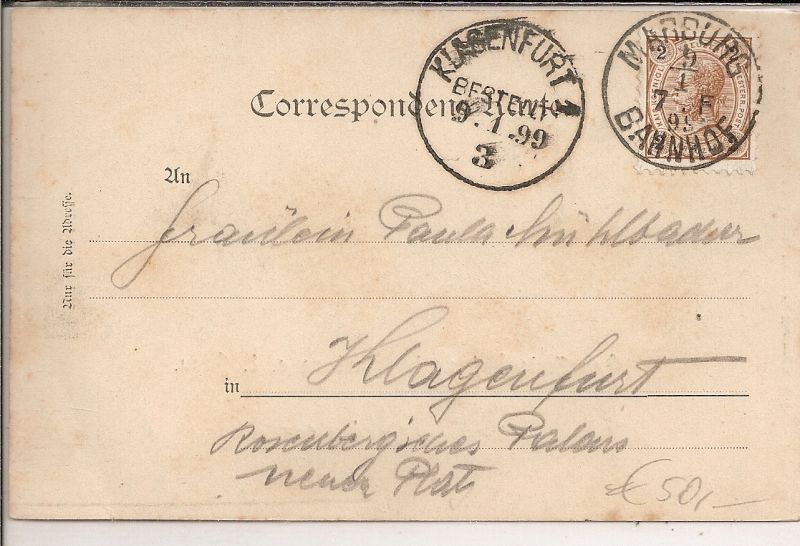 Correspondenz-Karte
KLAGENFURT 1
BESTELLT
9.1.99
3
MARBURG
9
1
7 F
99
BAHNHOF
An
Nur für die Adresse.
Fräulein Paula Mühlbacher
in Klagenfurt
Rosenbergisches Palais
neuer Platz
€ 50,-